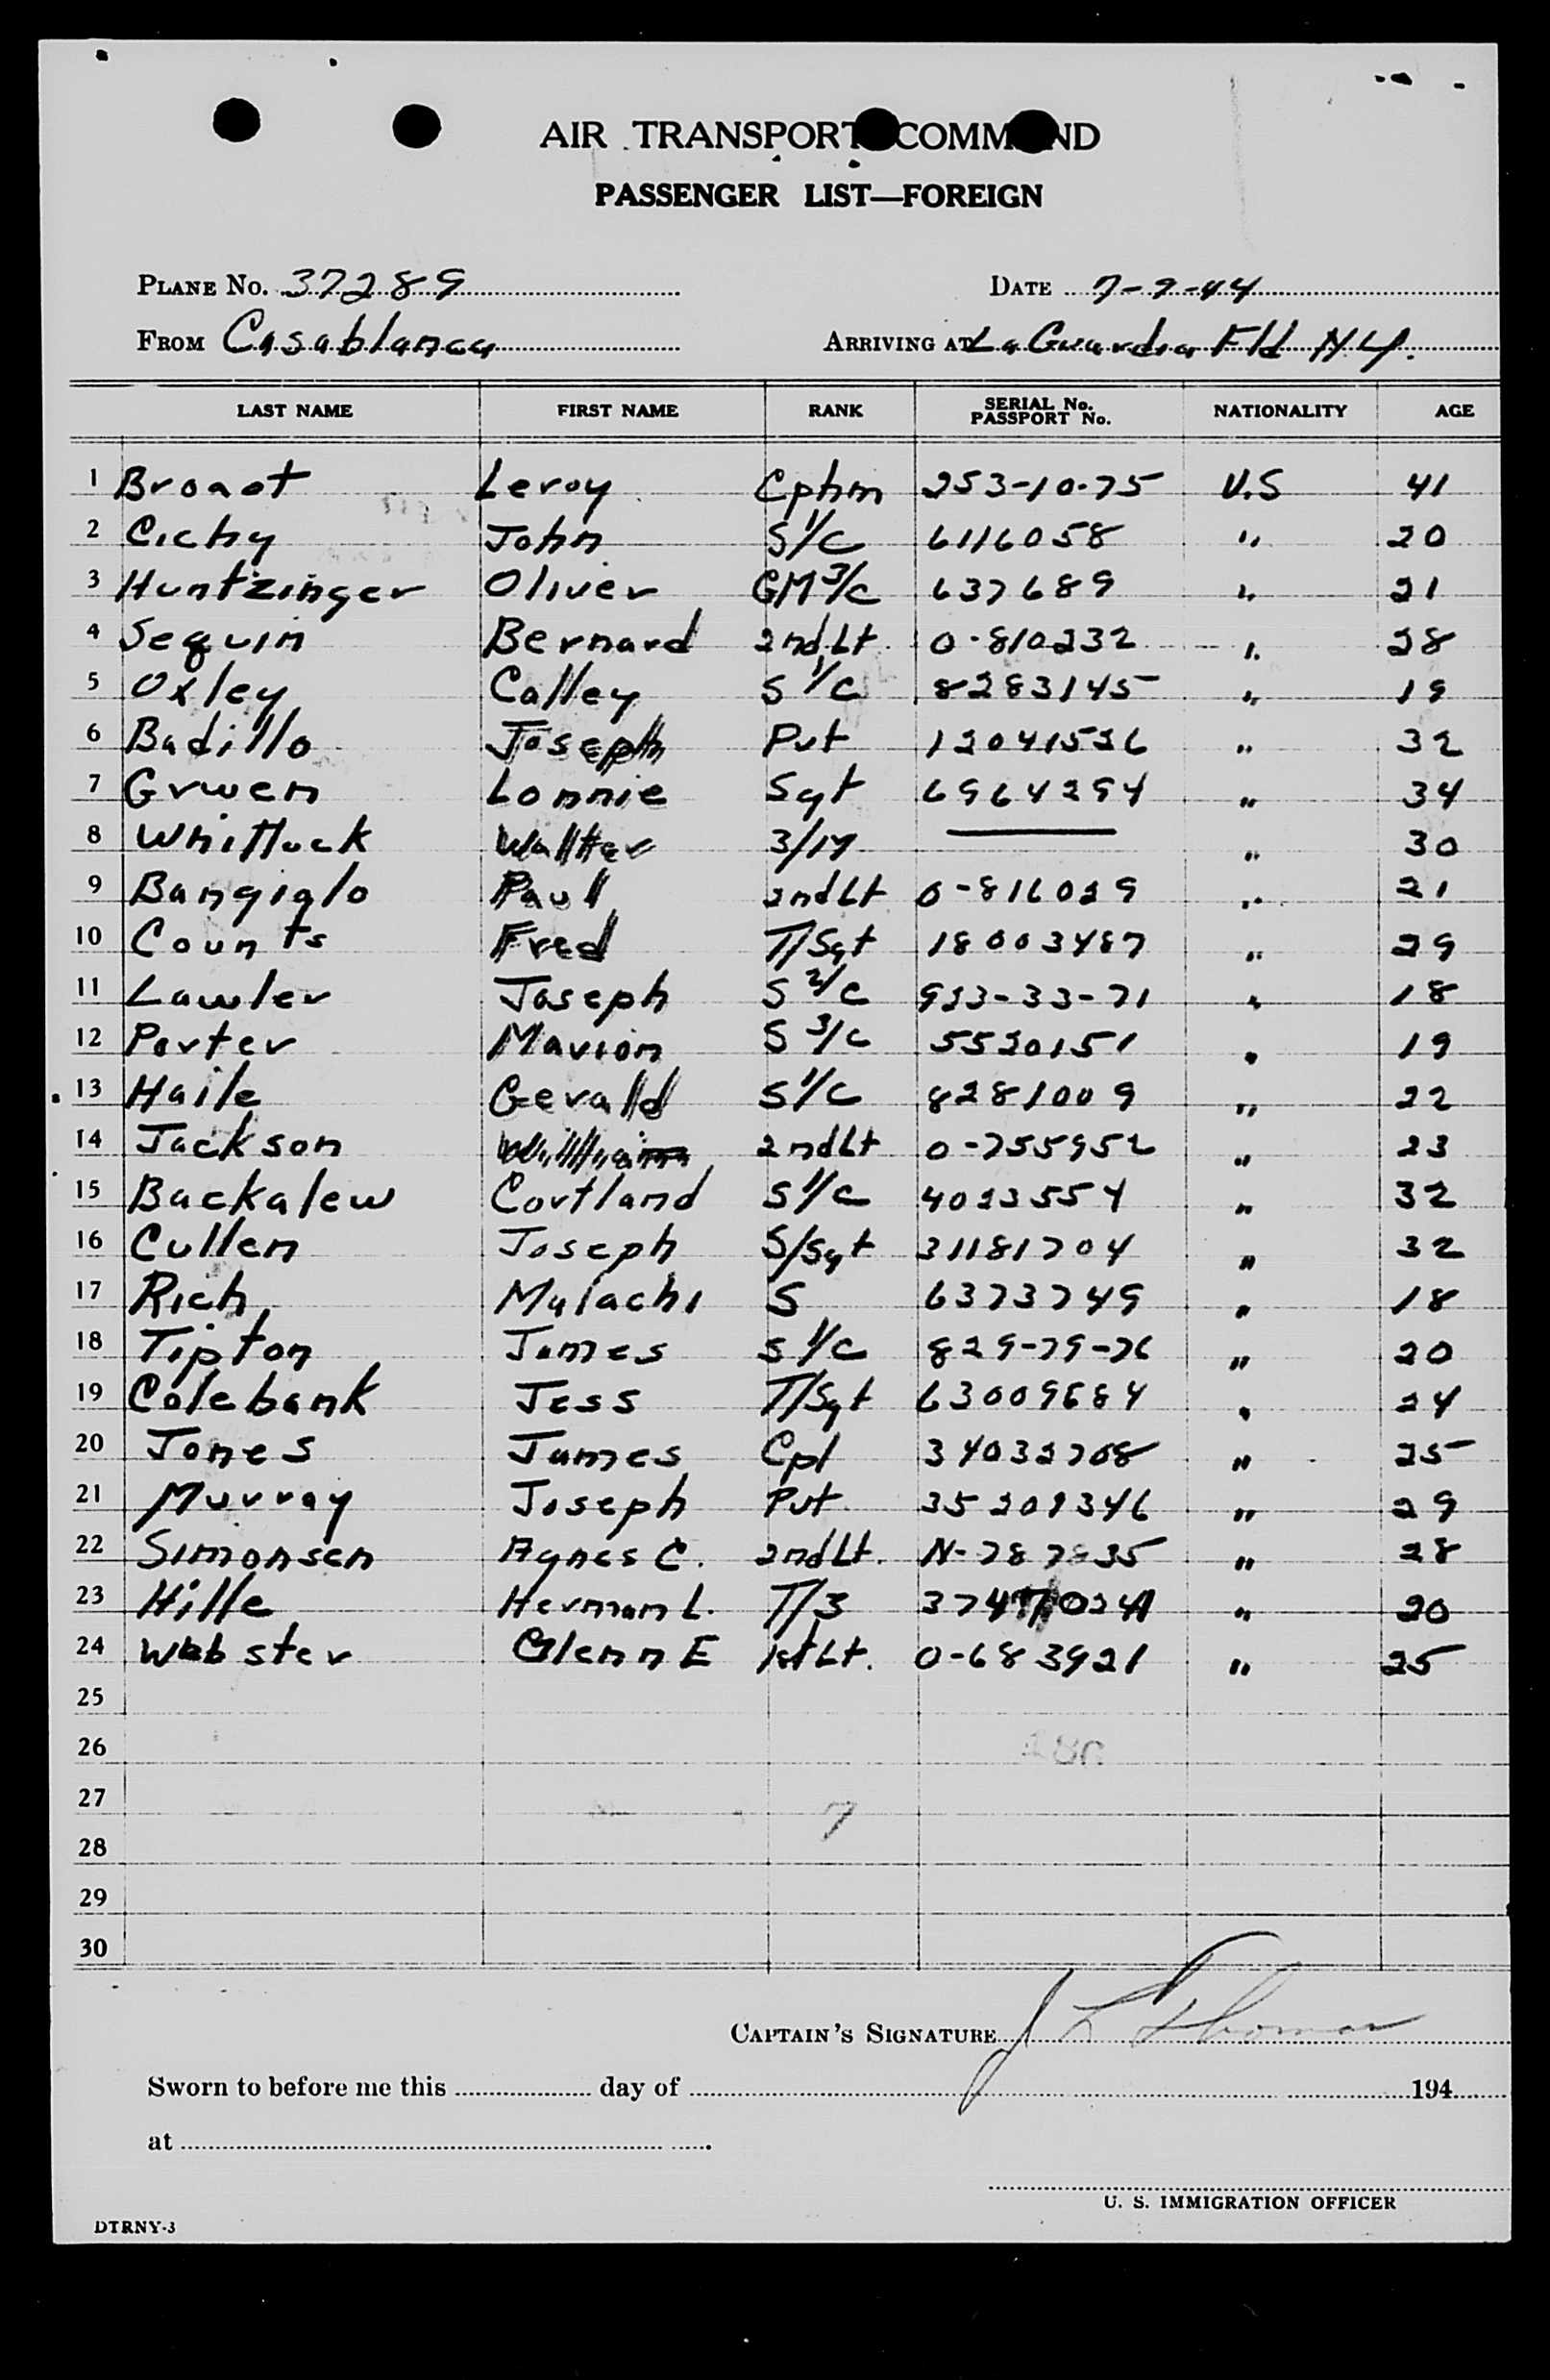 AIR TRANSPORT COMMAND
PASSENGER LIST—FOREIGN
PLANE No. 37289 DATE 7-7-44
FROM Casablanca ARRIVING AT La Guardia Fld N.Y.
LAST NAME FIRST NAME RANK SERIAL No. PASSPORT No. NATIONALITY AGE
1 Leroy Cphm 253-10-75 U.S 41
2 Cichy John S 1/C 6116058 " 20
3 Huntzinger Oliver GM 3/C 637689 " 21
4 Sequin Bernard 2nd Lt 0-810232 " 28
5 Oxley Calley S 1/C 8283145 " 19
6 Badillo Joseph Pvt 12041526 " 32
7 Grwen Lonnie Sgt 6964294 " 34
8 Whitluck Walter 3/M — " 30
9 Bangiolo Paul 2nd Lt 0-816029 " 21
10 Counts Fred T/Sgt 18003487 " 29
11 Lawler Joseph S 2/C 933-33-71 " 18
12 Porter Marion S 3/C 5520151 " 19
13 Haile Gerald S 1/C 8281009 " 22
14 Jackson William 2nd Lt 0-755952 " 23
15 Backalew Cortland S 1/C 4023554 " 32
16 Cullen Joseph S/Sgt 31181704 " 32
17 Rich Malachi S 6373749 " 18
18 Tipton James S 1/C 829-79-76 " 20
19 Colebank Jess T/Sgt " 24
20 Jones James Cpl 34032708 " 25
21 Murray Joseph Pvt 35209346 " 29
22 Simonsen Agnes C. 2nd Lt. " 28
23 Hille Herman L. T/3 " 20
24 Webster Glenn E 1st Lt. 0-683921 " 25
25
26
27
28
29
30
CAPTAIN'S SIGNATURE J L Thomas
Sworn to before me this day of 194
at
U. S. IMMIGRATION OFFICER
DTRNY-3